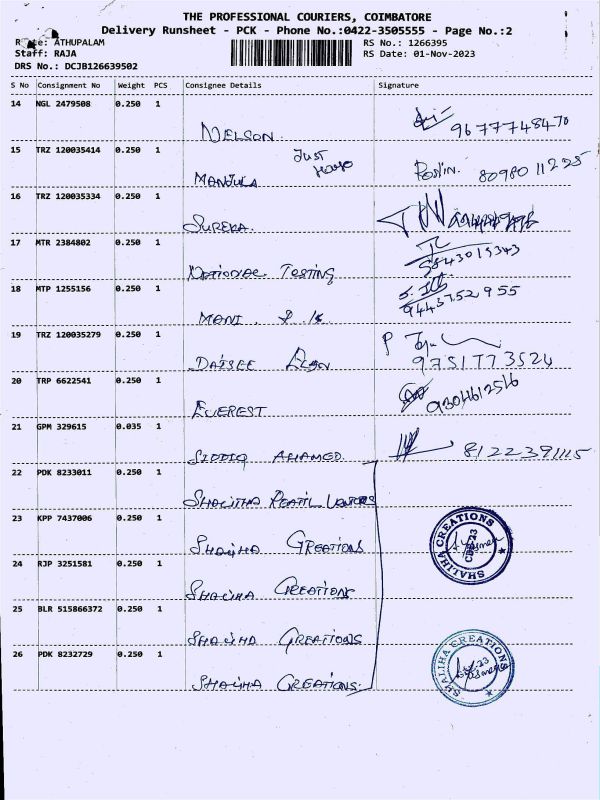 THE PROFESSIONAL COURIERS, COIMBATORE
Delivery Runsheet - PCK - Phone No.:0422-3505555 - Page No.:2
Route: ATHUPALAM RS No.: 1266395
Staff: RAJA RS Date: 01-Nov-2023
DRS No.: DCJB126639502
S No Consignment No Weight PCS Consignee Details Signature
14 NGL 2479508 0.250 1
NELSON. 9677748470
15 TRZ 120035414 0.250 1 Just
MANJULA 8098011225
16 TRZ 120035334 0.250 1
SUREKA.
17 MTR 2384802 0.250 1
National Testing 9843015343
18 MTP 1255156 0.250 1
MANI. 9443752955
19 TRZ 120035279 0.250 1
9751773524
20 TRP 6622541 0.250 1
EVEREST
21 GPM 329615 0.035 1
SIDDIQ AHAMED. 8122391115
22 PDK 8233011 0.250 1
23 KPP 7437006 0.250 1
SHALIHA CREATIONS
SHALIHA CREATIONS
24 RJP 3251581 0.250 1
SHALIHA CREATIONS
25 BLR 515866372 0.250 1
SHALIHA CREATIONS
26 PDK 8232729 0.250 1
SHALIHA CREATIONS.
SHALIHA CREATIONS